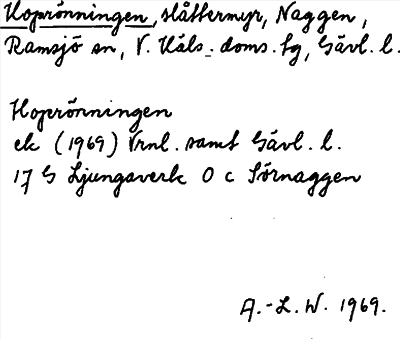 Koprönningen, slåttermyr, Naggen,
Ramsjö sn, V. Häls. doms. tg, Gävl. l.
Koprönningen
ek (1969) Vrnl. samt Gävl. l.
17 G Ljungaverk 0 c Sörnaggen
A.-L. W. 1969.